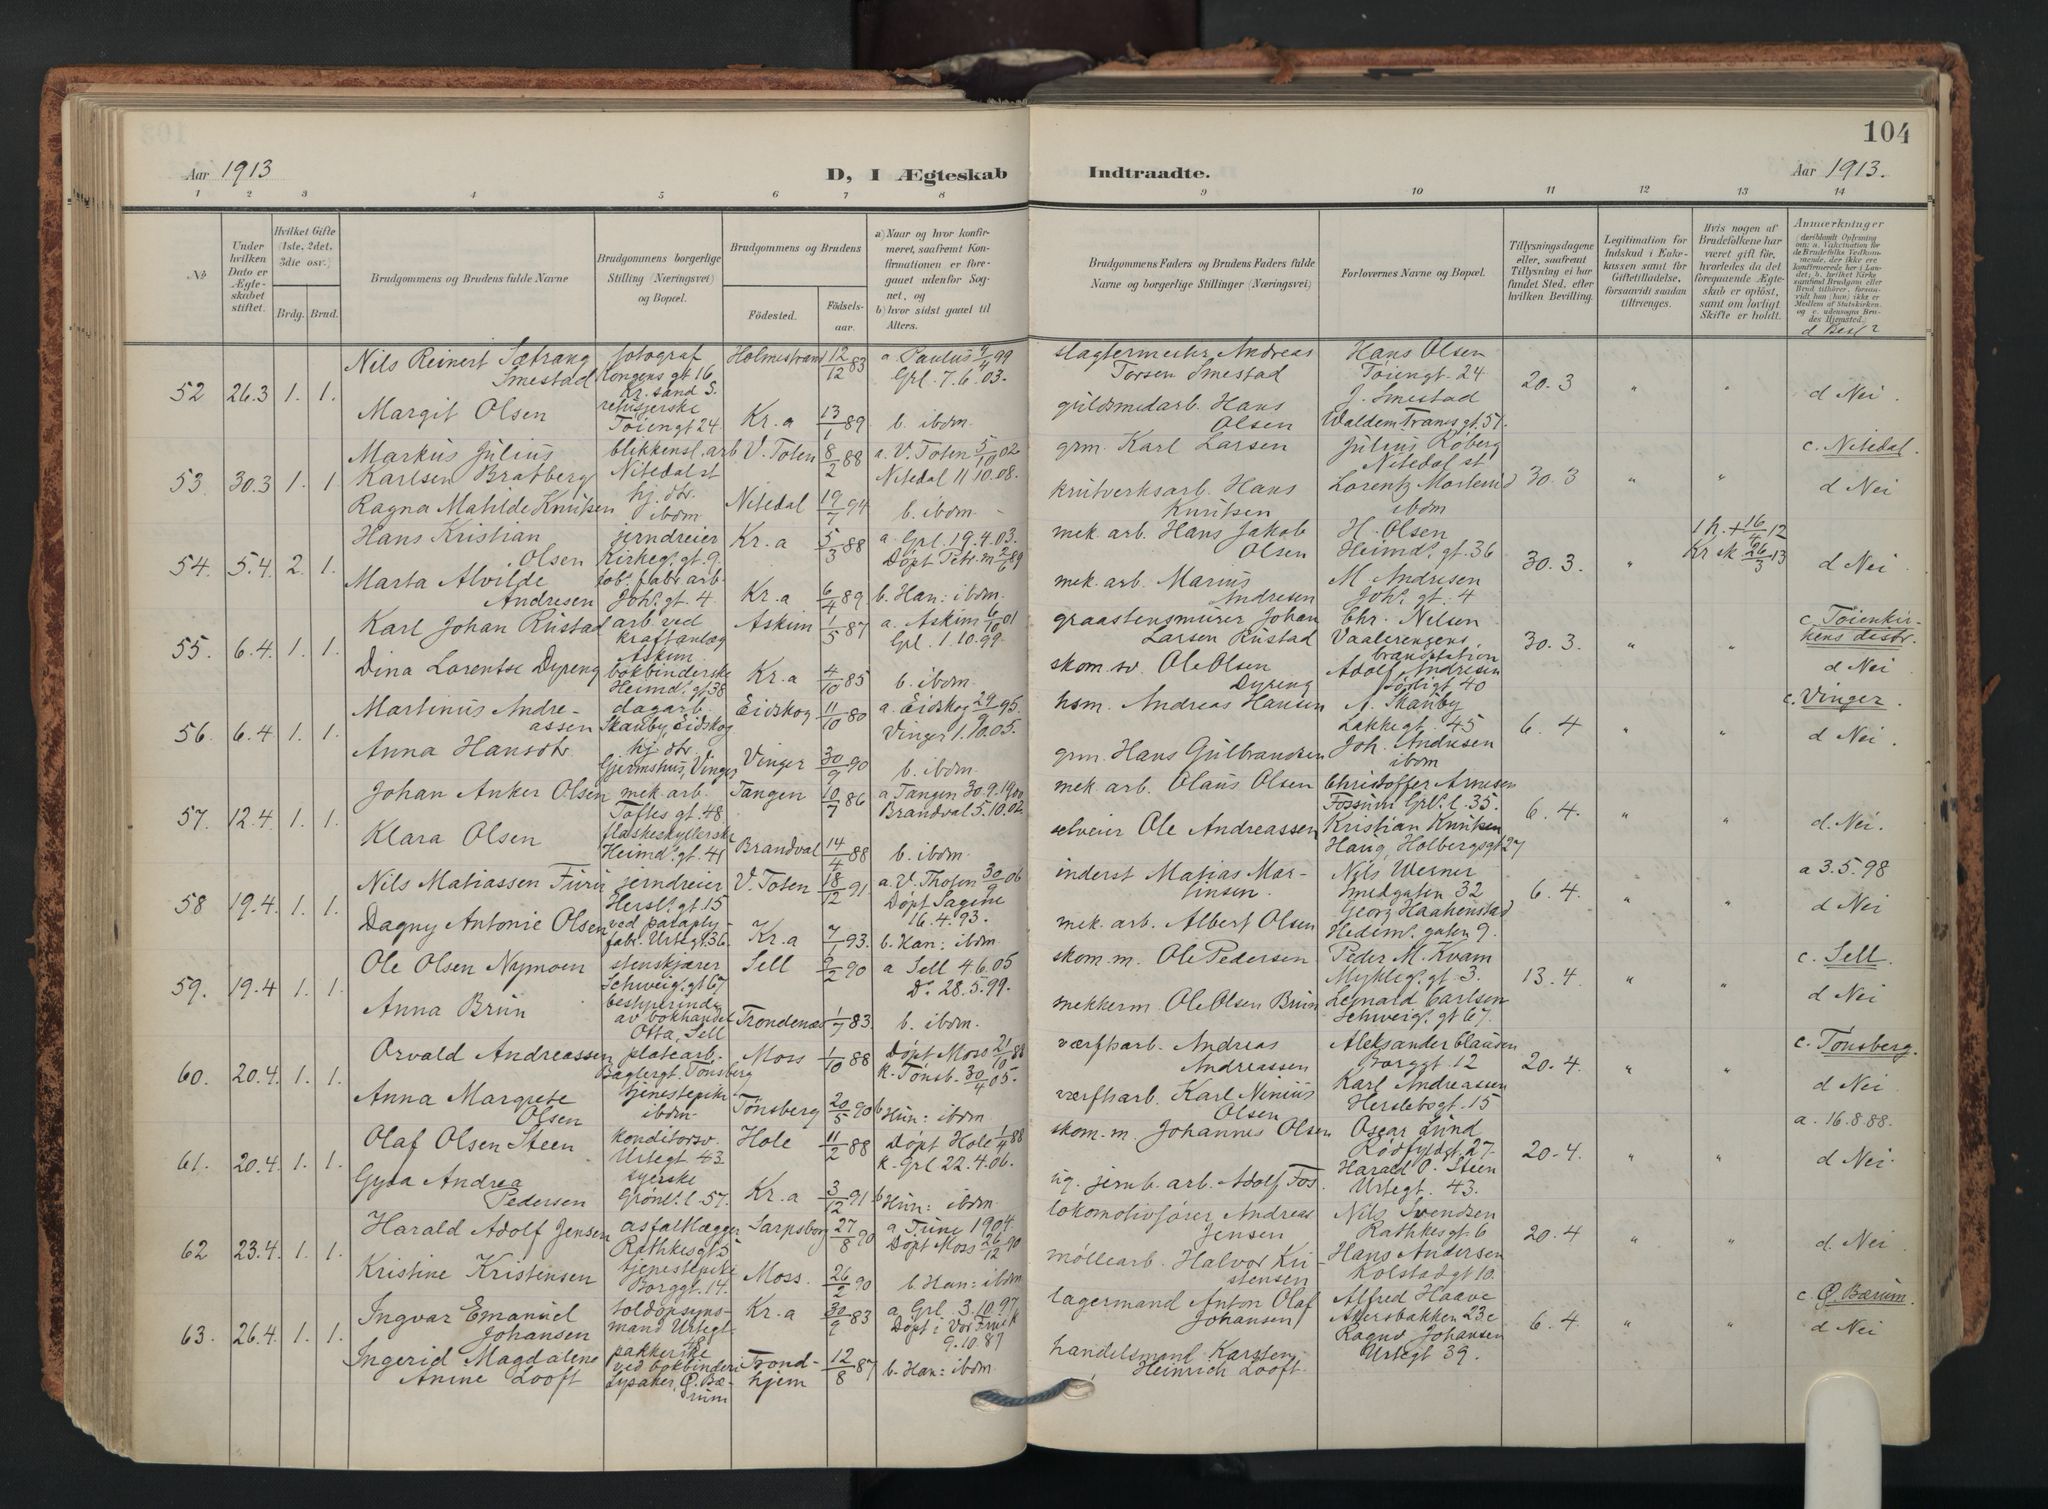 104
Aar 1913
D, I Ægteskab Indtraadte.
Aar 1913.
1 2 3 4 5 6 7 8 9 10 11 12 13 14
No
Under hvilken Dato er Ægteskabet stiftet.
Hvilket Gifte (1ste, 2det, 3die osv.)
Brdg. Brud.
Brudgommens og Brudens fulde Navne
Brudgommens borgerlige Stilling (Næringsvei) og Bopæl.
Brudgommens og Brudens
Fødested. Fødselsaar.
a) Naar og hvor konfirmeret, saafremt Konfirmationen er foregaaet udenfor Sognet, og
b) hvor sidst gaaet til Alters.
Brudgommens Faders og Brudens Faders fulde Navne og borgerlige Stillinger (Næringsvei)
Forlovernes Navne og Bopæl.
Tillysningsdagene eller, saafremt Tillysning ei har fundet Sted, efter hvilken Bevilling.
Legitimation for Indskud i Enkekassen samt for Giftetilladelse, forsaavidt saadan tiltrænges.
Hvis nogen af Brudefolkene har været gift før, hvorledes da det foregaaende Ægteskab er opløst, samt om lovligt Skifte er holdt.
Anmerkninger
d Best?
52 26.3 1. 1.
Nils Reinert Sætrang Smestad
fotograf Kongens gt 16 Kr.sand S.
Holmestrand 12/12 83
a. Paulus 9/4 99 Grl. 7.6.03.
slagtermester Andreas Torsen Smestad
Hans Olsen Tøiengt. 24
20.3 " "
d Nei.
Margit Olsen
retusjerske Tøiengt 24
Kr.a 13/1 89
b. ibdm.
guldsmedarb. Hans Olsen
J. Smestad Waldem Tranes gt. 51.
53. 30.3 1. 1.
Markus Julius Karlsen Bratberg
blikkensl. arb Nitedal st
V. Toten 8/2 88
a. V. Toten 5/10 02 Nitedal 11 10.08.
grm. Karl Larsen
Julius Roberg Nitedal st
30.3 " "
c. Nitedal.
d Nei
Ragna Matilde Knutsen
hj. dtr. ibdm
Nitedal 19/7 94
b. ibdm.
krutverksarb. Hans Knutsen
Lorentz ibdm
54. 5.4. 2. 1.
Hans Kristian Olsen
jerndreier Kirkeg. gt. 9.
Kr.a 5/3 88
a. Grl. 19.4.03.
mek. arb. Hans Jakob Olsen
H. Olsen Heimd. gt. 36
30.3. "
1 h. + 16/4 12 Kr sk 26/3 13
d Nei
Marta Alvilde Andresen
tob. fabr arb. Joh. gt. 4
Kr.a 6/4 89
Døpt Petr. m 2/6 89 b. Han: ibdm.
mek. arb. Marius Andresen
M Andresen Joh. gt. 4
55. 6.4. 1. 1.
Karl Johan Rustad
arb. ved kraftanlæg Askim
Askim 1/5 87
a. Askim 6/10 01 Grl. 1.10.99.
graastensmurer Johan Larsen Rustad
Chr. Nilsen Vaalerengens brandstation
30.3. " "
c. Tøienkirkens distr.
d Nei
Dina Lorentse Dyreng
bokbinderske Heimd. gt. 38
Kr.a 4/10 85
b. ibdm.
skom. sv. Ole Olsen Dyreng
Adolf Andresen Sørligt 40
56. 6.4 1. 1.
Martinus Andreassen
dagarb. Skanby, Eidskog
Eidskog 11/10 80
a. Eidskog 29/9 95. Vinger 1.10.05.
hsm. Andreas Hansen
A. Skanby Lakkegt 45
6.4 " "
c. Vinger.
d Nei
Anna Hansdtr
hj dtr. Gjermshus, Vinger
Vinger 30/9 90
b. ibdm.
grm. Hans Gulbrandsen
Joh. Andresen ibdm
57. 12.4 1. 1.
Johan Anker Olsen
mek. arb. Toftes gt. 48
Tangen 10/7 86
a. Tangen 30.9.1900 Brandval 5.10.02.
mek. arb. Olaus Olsen
Christoffer Arnesen Fossum Grl. l. 35.
6.4. " "
d. Nei.
Klara Olsen
flaskeskyllerske Heimd. gt. 41
Brandval 14/4 88
b. ibdm.
selveier Ole Andreassen
Kristian Knutsen Haug, Holbergsgt 27
58 19.4. 1. 1.
Nils Matiassen Furu
jerndreier Hersl. gt. 15
V. Toten 18/12 91.
a. V. Thoten 30/9 06
inderst Matias Martinsen.
Nils Werner Smedgaten 32
6.4. " "
a 3.5.98
d Nei
Dagny Antonie Olsen
ved paraplyfabr. Urtegt. 36.
Kr.a 7/1 93.
Døpt Sagene 16.4.93. b. Han: ibdm.
mek. arb. Albert Olsen
Georg Haakenstad Hedem. gaten 9.
59. 19.4 1. 1.
Ole Olsen Nymoen
stenskjærer Schweig. gt 67
Sell 9/2 90
a Sell 4.6.05 Do. 28.5.99.
skom. m. Ole Pedersen
Peder M. Kvam Mykleg. gt. 3.
13.4. " "
c. Sell.
d Nei
Anna Brun
bestyrerinde av bokhandel Otta, Sell
Trondenæs 1/7 83.
b. ibdm.
snekkerm. Ole Olsen Brun
Lenard Carlsen Schweig. gt 67.
60. 20.4. 1. 1.
Orvald Andreassen
platearb. Baglergt. Tønsberg
Moss 1/10 88
Døpt Moss 21/10 88 k. Tønsb. 30/4 05.
værftsarb. Andreas Andreassen
Aleksander Clausen Borggt 12
20.4. " "
c. Tønsberg.
d Nei
Anna Margrete Olsen
tjenestepike ibdm.
Tønsberg 20/5 90
b Hun: ibdm.
værftsarb. Karl Ninius Olsen
Karl Andreassen Herslebsgt. 15
61. 20.4. 1. 1.
Olaf Olsen Steen
konditorsv. Urtegt. 43.
Hole 11/2 88
Døpt Hole 1/4 88 k. Grl 22.4.06.
skom. m. Johannes Olsen
Oscar Lund Rødfyldgt. 27.
20.4. " "
a. 16.8.88.
d Nei.
Gyda Andrea Pedersen
syerske Grønl. l. 57.
Kr.a 3/12 91
b Hun: ibdm.
ug. jernb. arb. Adolf Fos.
Harald O. Steen Urtegt. 43.
62 23.4. 1. 1.
Harald Adolf Jensen
asfaltlægger Rathkesgt 5
Sarpsborg 27/8 90
a. Tune 1904. Døpt Moss 26/12 90
lokomotivfører Andreas Jensen
Nils Svendsen Rathkesgt. 6
20.4 " "
d. Nei
Kristine Kristensen
tjenestepike Borggt. 14.
Moss. 26/2 90
b. Han: ibdm
møllearb. Halvor Kristensen
Hans Andersen Kolstadgt 10.
63. 26.4. 1. 1.
Ingvar Emanuel Johansen
toldopsynsmand Urtegt. 43
Kr.a 30/9 83
a. Grl. 3.10.97
lagermand Anton Olaf Johansen
Alfred Haave Akersbakken 23c
6.4. " "
c. Ø. Bærum.
d Nei
Ingerid Magdalene Anine Looft
pakkerske ved bokbinderi Lysaker, Ø. Bærum
Trondhjem 12/8 87
Døpt i Vor Frue k 9.10.87 b. Han: ibdm
handelsmand Karsten Heinrich Looft.
Ragnv. Johansen Urtegt 39.